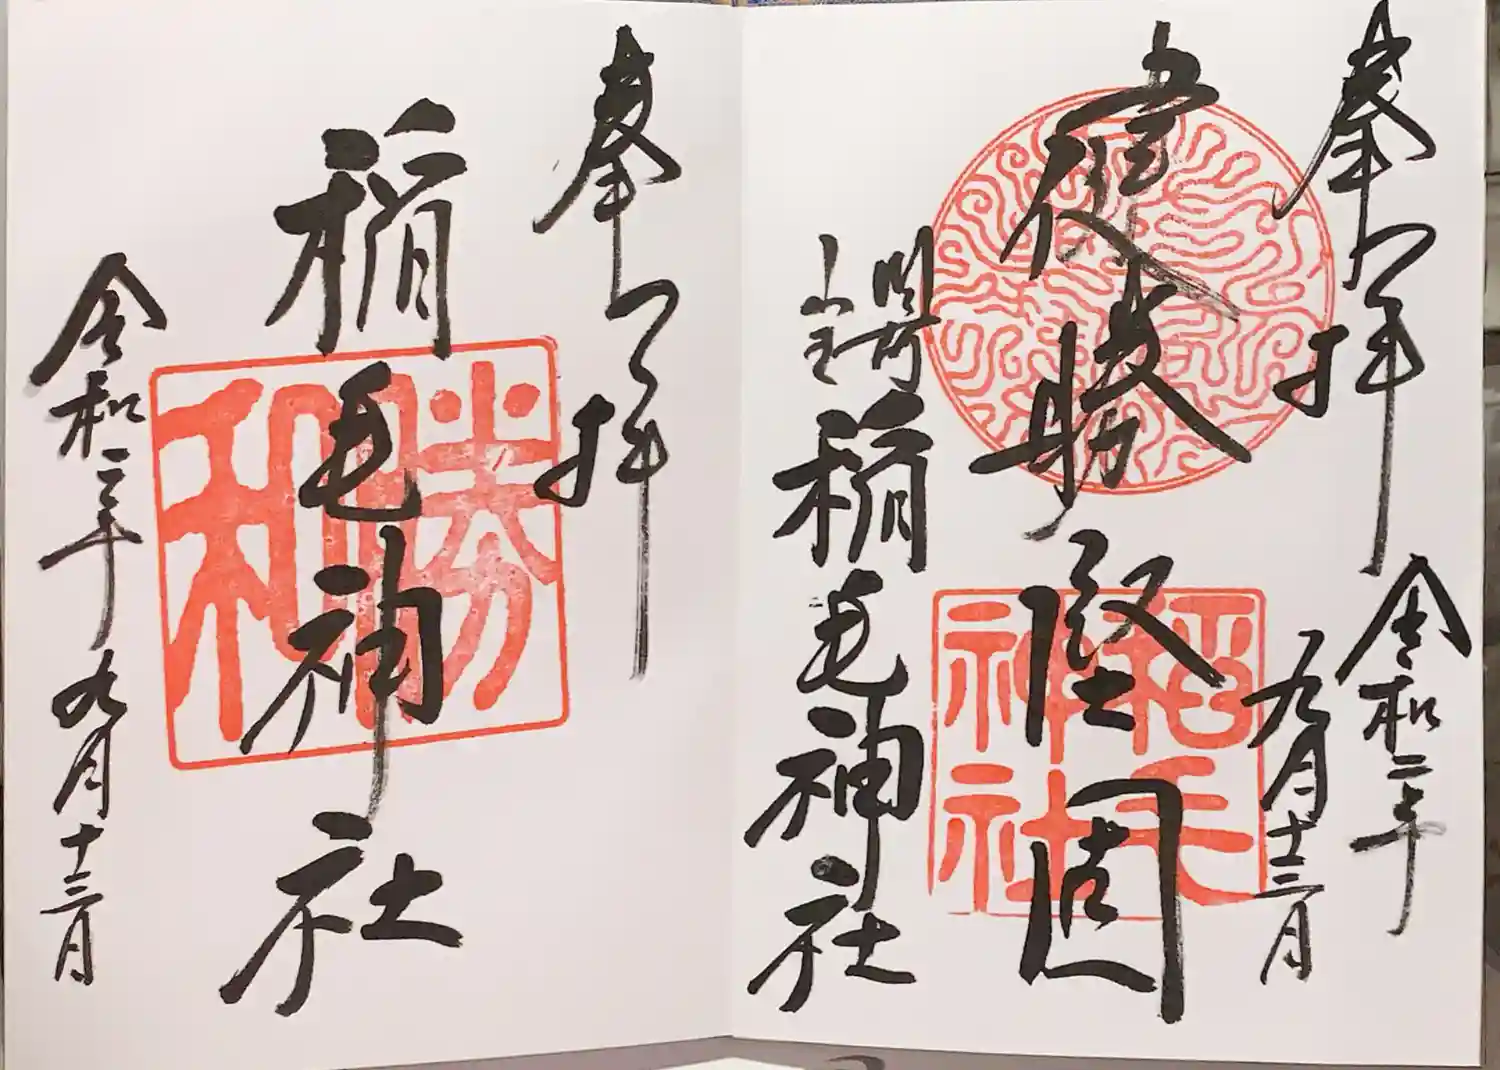 奉拝
令和二年
九月十三日
健勝堅固
稲毛神社
稲毛神社
奉拝
稲毛神社
勝和
令和二年九月十三日